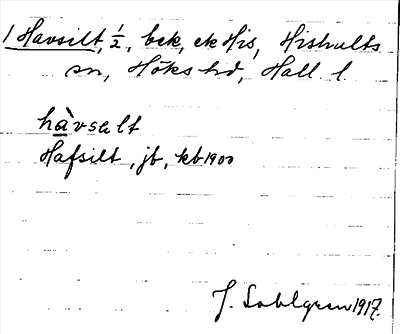 1 Havsilt, 1/2, bek, ek His, Hishults
sn, Höks hd, Hall. l.
hàvsalt
Hafsilt, jb, kb 1900
J. Sahlgren 1917.